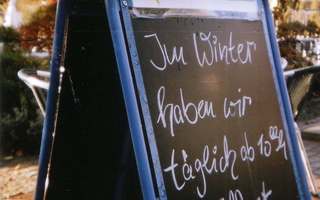 Im Winter
haben wir
täglich ab 10